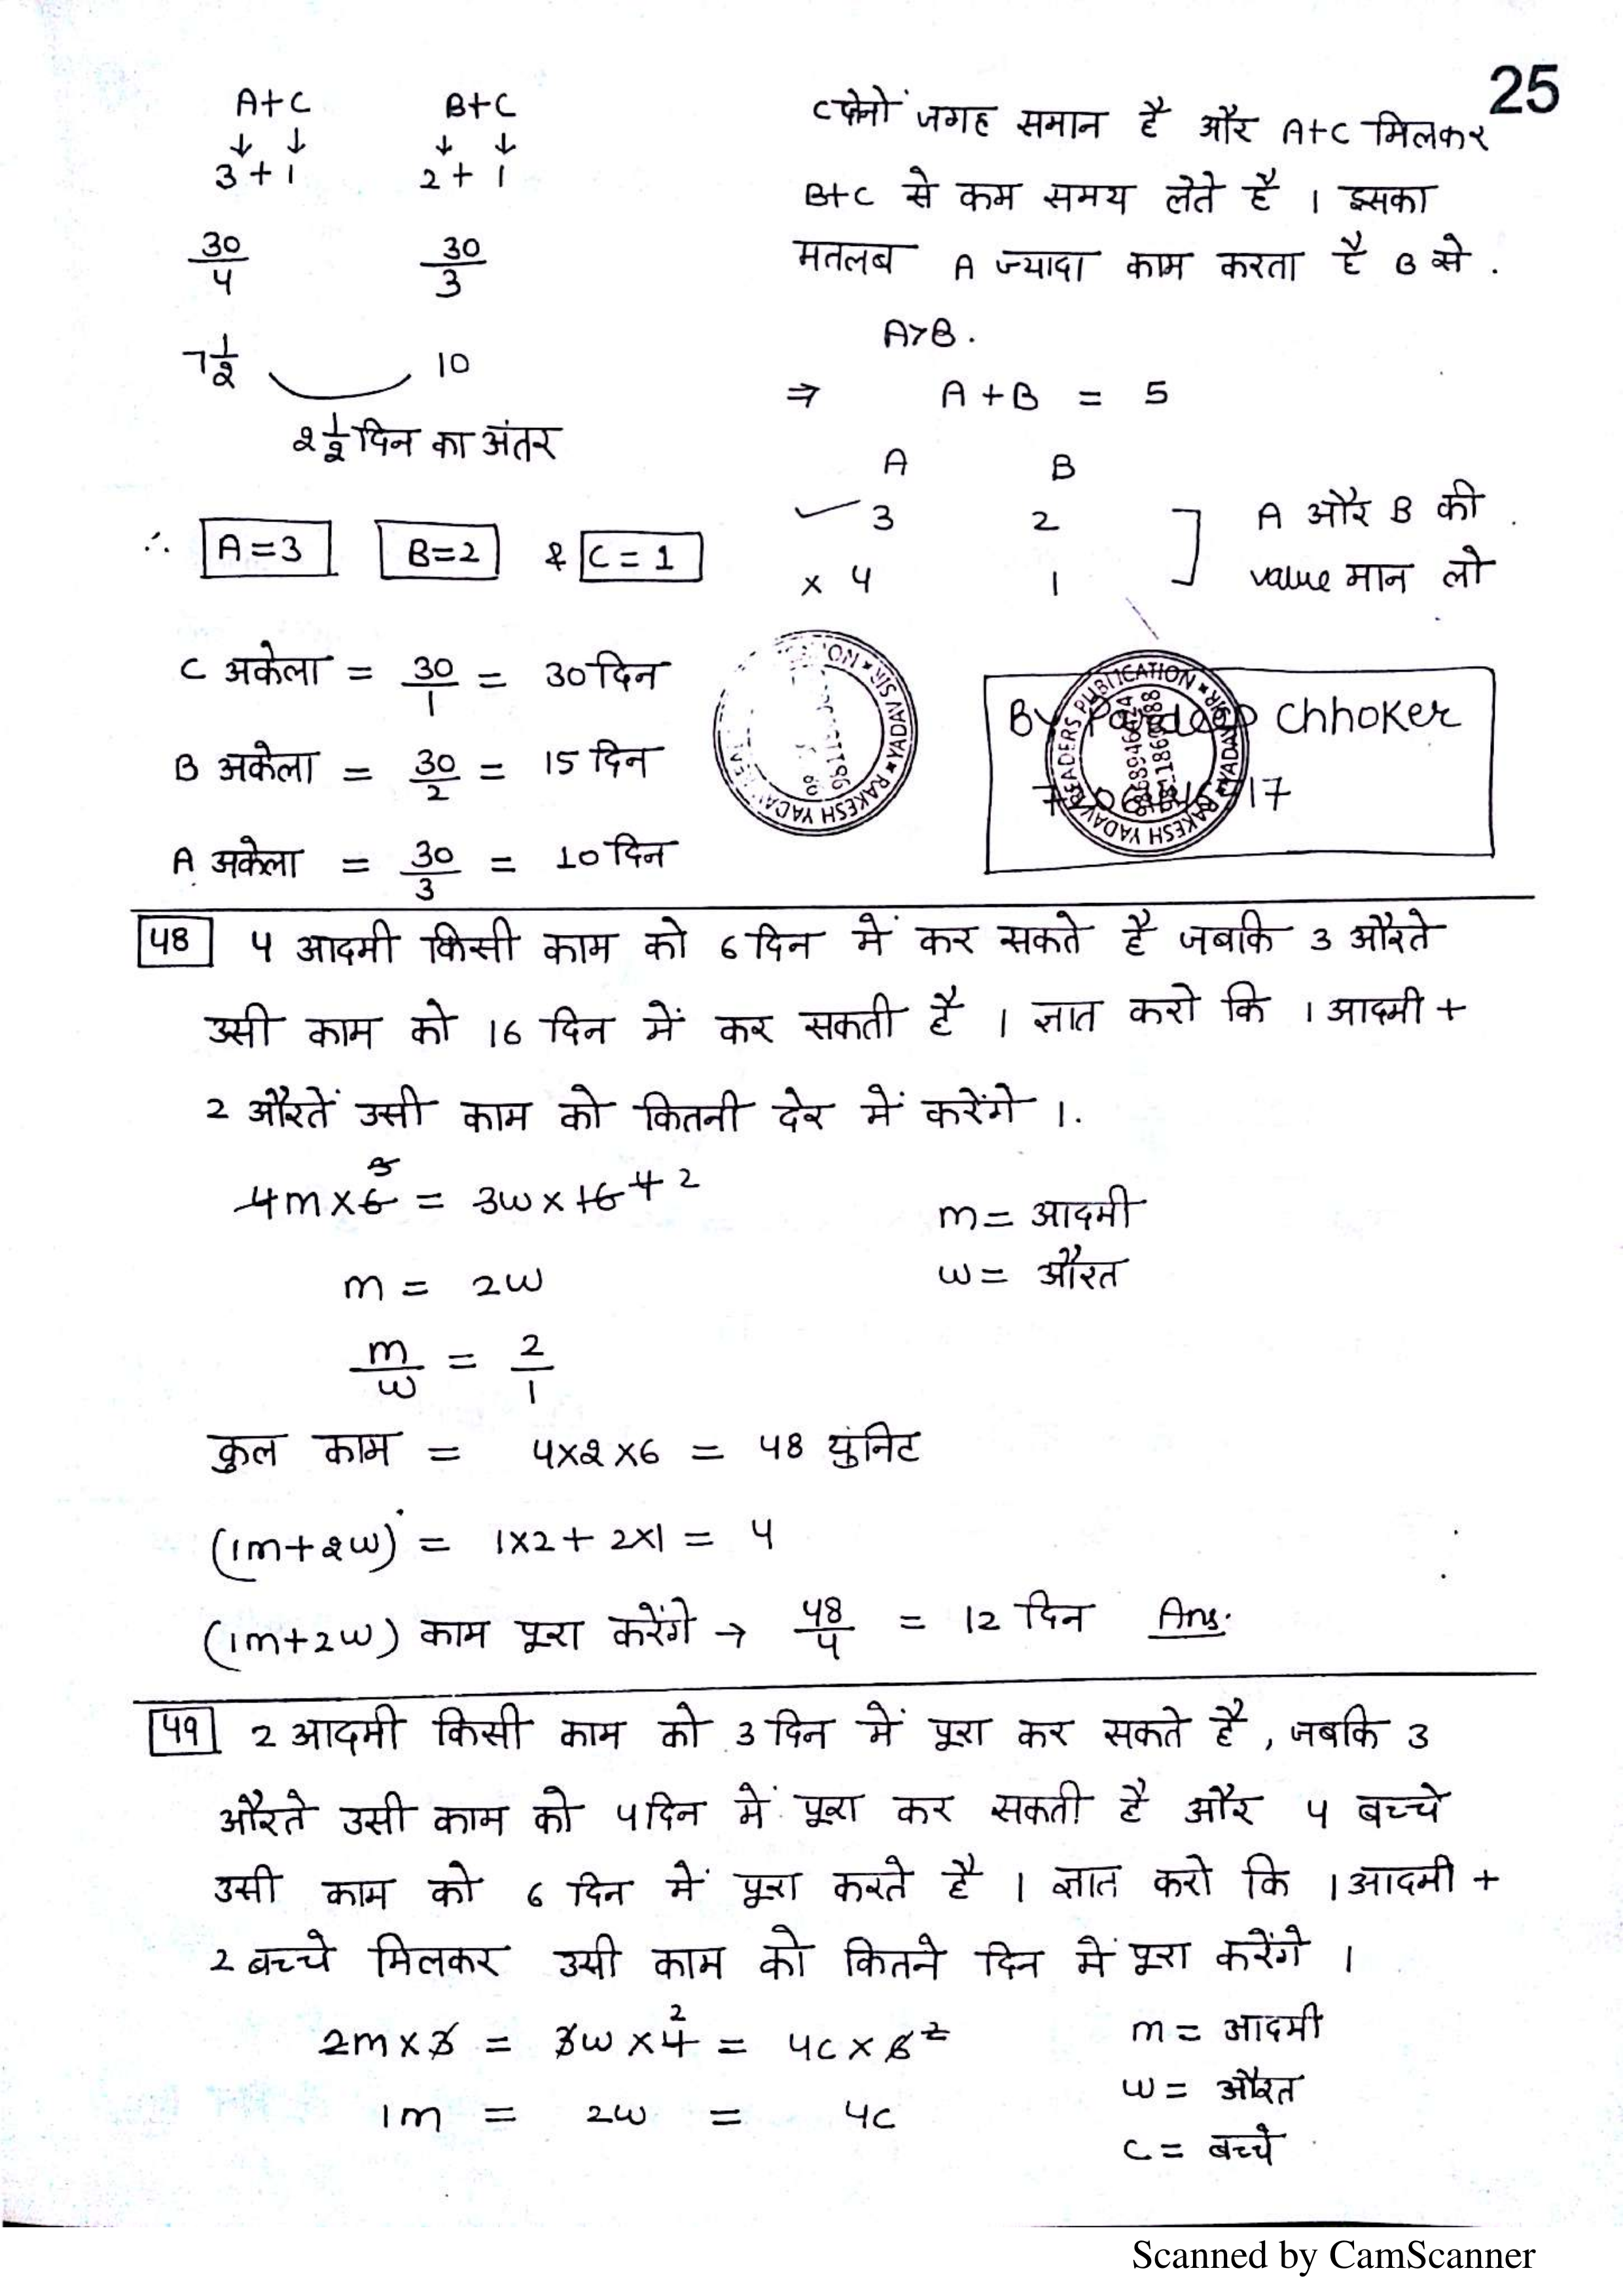 25
A+C B+C
↓ ↓ ↓ ↓
3+1 2+1
30/4 30/3
7 1/2 10
2 1/2 दिन का अंतर
C दोनों जगह समान है और A+C मिलकर
B+C से कम समय लेते है । इसका
मतलब A ज्यादा काम करता है B से .
A>B.
⇒ A+B = 5
A B
✓ 3 2
x 4 1
A और B की
value मान लो
∴ A=3 B=2 & C=1
C अकेला = 30/1 = 30 दिन
B अकेला = 30/2 = 15 दिन
A अकेला = 30/3 = 10 दिन
RAKESH YADAV
YADAV SIR
READERS PUBLICATION
RAKESH YADAV
By Pardeep Chhoker
48 4 आदमी किसी काम को 6 दिन में कर सकते है जबकि 3 औरते
उसी काम को 16 दिन में कर सकती है । ज्ञात करो कि 1 आदमी +
2 औरतें उसी काम को कितनी देर में करेंगे ।.
4m x 6 3 = 3w x 16 4 2
m = 2w
m/w = 2/1
m = आदमी
w = औरत
कुल काम = 4x2x6 = 48 युंनिट
(1m+2w) = 1x2 + 2x1 = 4
(1m+2w) काम पूरा करेंगे → 48/4 = 12 दिन Ans.
49 2 आदमी किसी काम को 3 दिन में पूरा कर सकते है , जबकि 3
औरते उसी काम को 4 दिन में पूरा कर सकती है और 4 बच्चे
उसी काम को 6 दिन में पूरा करते है । ज्ञात करो कि 1 आदमी +
2 बच्चे मिलकर उसी काम को कितने दिन में पूरा करेंगे ।
2m x 3 = 3w x 4 2 = 4c x 6 2
1m = 2w = 4c
m = आदमी
w = औरत
c = बच्चे
Scanned by CamScanner